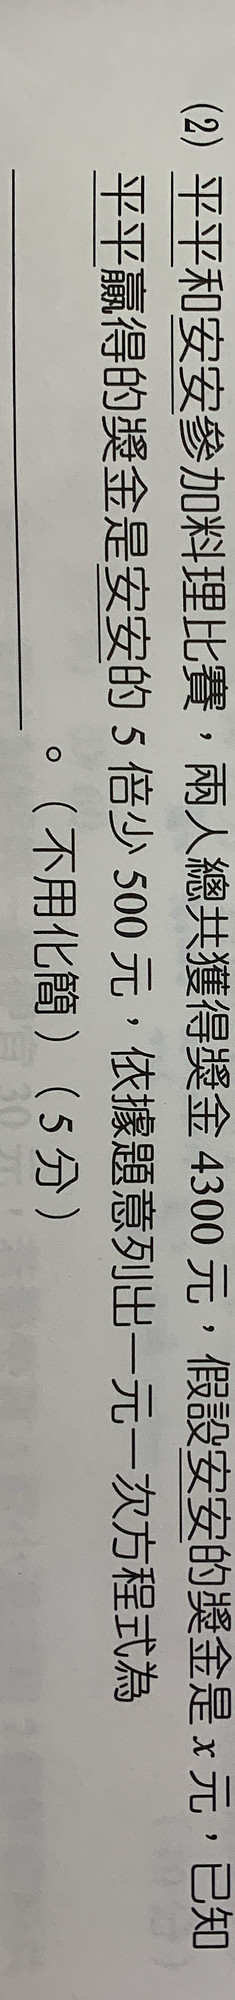 (2) 平平和安安參加料理比賽，兩人總共獲得獎金 4300 元，假設安安的獎金是 x 元，已知
平平贏得的獎金是安安的 5 倍少 500 元，依據題意列出一元一次方程式為
。（不用化簡）（5 分）